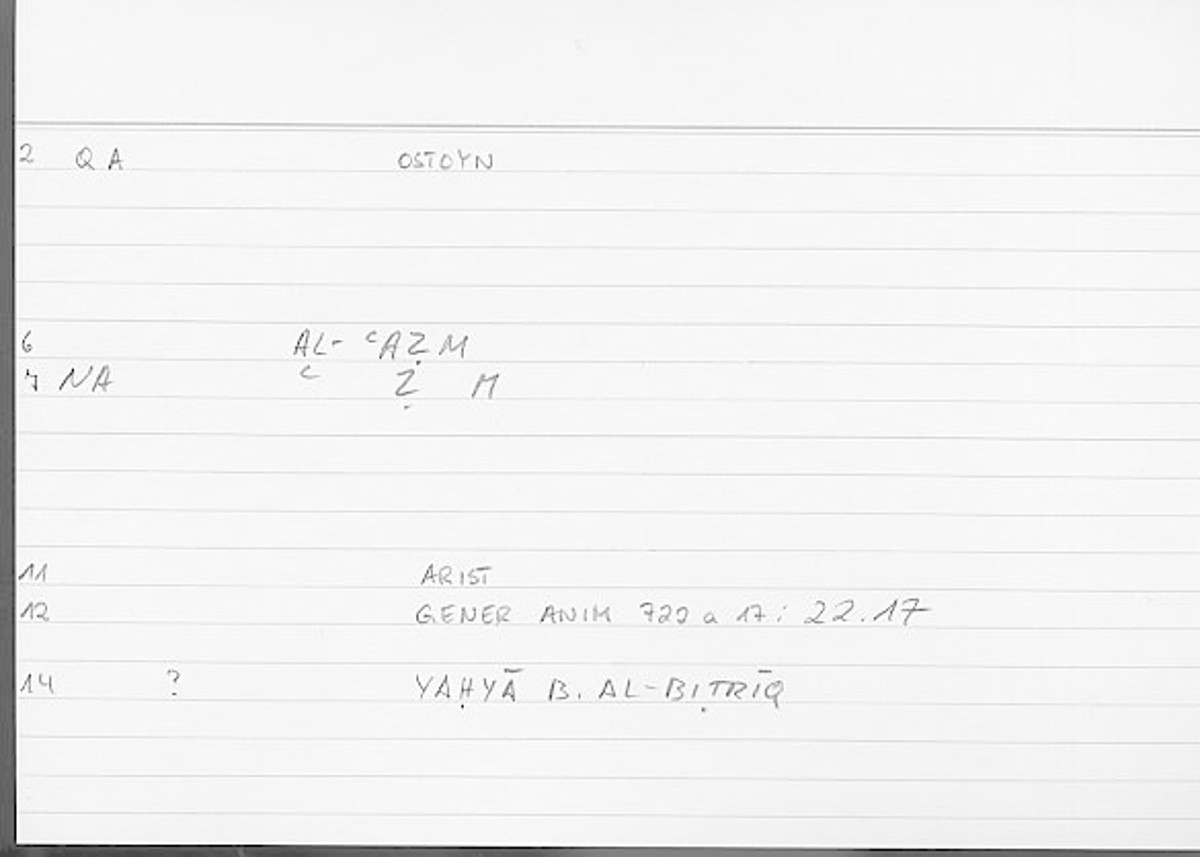 2 QA OSTOYN
6 AL-ʿAẒM
7 NA ʿ Ẓ M
11 ARIST
12 GENER ANIM 722 a 17; 22.17
14 ? YAḤYĀ B. AL-BIṬRĪQ